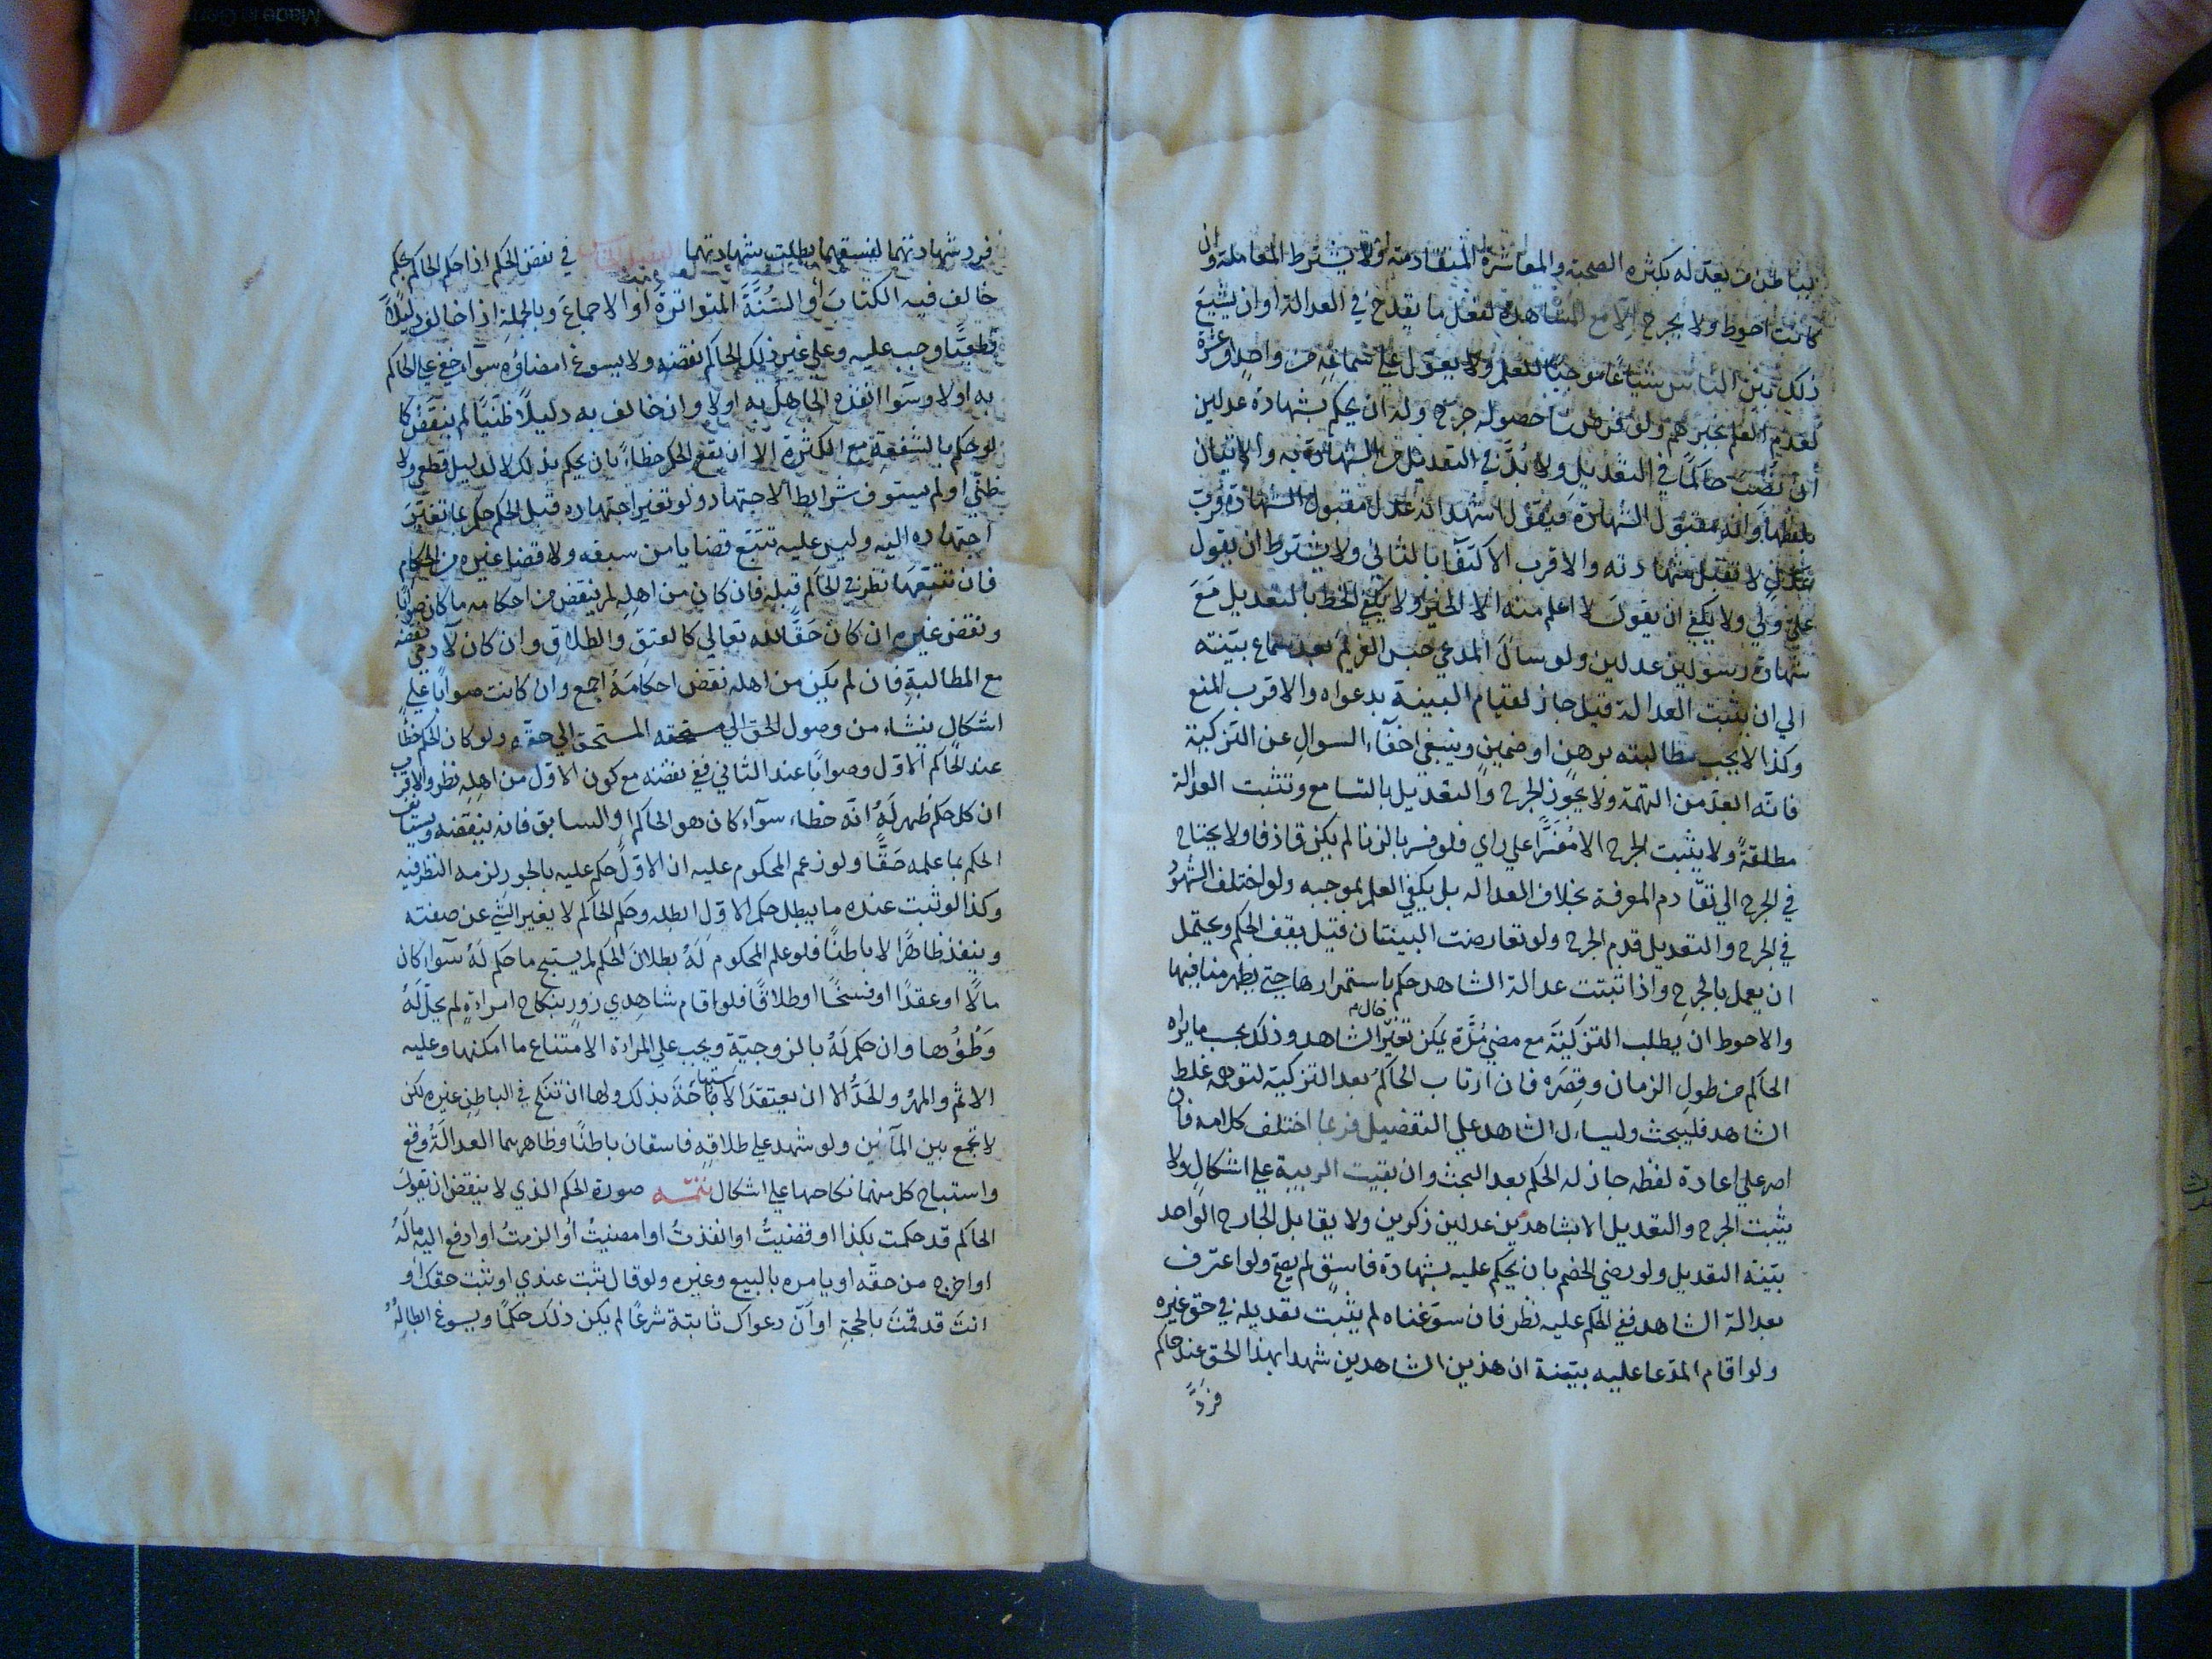 بباطن من يعدله بكثرة الصحبة والمعاشرة المتقادمة ولا يشترط المعاملة وان
كانت احوط ولا يجرح الا مع المشاهدة لفعل ما يقدح في العدالة او ان يشيع
ذلك بين الناس شياعا موجبا للعلم ولا يعول على سماعه من واحد او عشرة
لعدم العلم بخبرهم ولو فرضنا حصوله جرح وله ان يحكم بشهادة عدلين
ان نصب حاكما في التعديل ولا بد في التعديل من الشهادة به والاتيان
بلفظها وانه مقبول الشهادة فيقول اشهد انه عدل مقبول الشهادة فرب
عدل لا تقبل شهادته والاقرب الاكتفا بالثاني ولا يشترط ان يقول
علي ولي ولا يكفي ان يقول لا اعلم منه الا الخير ولا يكفي الخط بالتعديل مع
شهادة رسولين عدلين ولو سال المدعي حبس الغريم بعد سماع بينته
الي ان يثبت العدالة قيل جاز لقيام البينة بدعواه والاقرب المنع
وكذا لا يجب مطالبته برهن او ضمين وينبغي اخفاء السوال عن التزكية
فانه ابعد من التهمة ولا يجوز الجرح والتعديل بالتسامع وتثبت العدالة
مطلقة ولا يثبت الجرح الا مفسرا علي راي فلو فسر بالزنا لم يكن قاذفا ولا يحتاج
في الجرح الي تقادم المعرفة بخلاف العدالة بل يكفي العلم بموجبه ولو اختلف الشهود
في الجرح والتعديل قدم الجرح ولو تعارضت البينتان قيل يقف الحكم ويحتمل
ان يعمل بالجرح واذا ثبتت عدالة الشاهد حكم باستمرارها حتي يظهر منافيها
والاحوط ان يطلب التزكية مع مضي مدة يمكن تغير حال الشاهد وذلك بحسب ما يراه
الحاكم من طول الزمان وقصره فان ارتاب الحاكم بعد التزكية لتوهم غلط
الشاهد فليبحث وليسال الشاهد علي التفصيل فربما اختلف كلامه فان
اصر علي اعادة لفظه جاز له الحكم بعد البحث وان بقيت الريبة علي اشكال ولا
يثبت الجرح والتعديل الا بشاهدين عدلين ذكرين ولا يقابل الجارح الواحد
بينة التعديل ولو رضي الخصم بان يحكم عليه بشهادة فاسق لم يصح ولو اعترف
بعدالة الشاهد ففي الحكم عليه نظر فان سوغناه لم يثبت تعديله في حق غيره
ولو اقام المدعا عليه بينة ان هذين الشاهدين شهدا بهذا الحق عند حاكم
فرد
فرد شهادتهما لفسقهما بطلت شهادتهما في نقض الحكم اذا حكم الحاكم بحكم
خالف فيه الكتاب او السنة المتواترة او الاجماع وبالجملة اذا خالف دليلا
قطعيا وجب عليه وعلي غير ذلك الحاكم نقضه ولا يسوغ امضاؤه سواء خفي علي الحاكم
به او لا وسوا انفذه الجاهل به او لا وان خالف به دليلا ظنيا لم ينقض كما
لو حكم بالشفعة مع الكثرة الا ان يقع الحكم خطاء بان يحكم بذلك لا لدليل قطعي ولا
ظني او لم يستوف شرايط الاجتهاد ولو تغير اجتهاده قبل الحكم حكم بما تغير
اجتهاده اليه وليس عليه تتبع قضايا من سبقه ولا قضا غيره من الحكام
فان تتبعها نظر في الحاكم قبله فان كان من اهله لم ينقض من احكامه ما كان صوابا
ونقض غيره ان كان حقا لله تعالي كالعتق والطلاق وان كان لآدمي نقضه
مع المطالبة فان لم يكن من اهله نقض احكامه اجمع وان كانت صوابا علي
اشكال ينشاء من وصول الحق الي مستحقه المستحق الي حقه ولو كان الحكم خطا
عند الحاكم الاول وصوابا عند الثاني ففي نقضه مع كون الاول من اهله نظر والاقرب
ان كل حكم ظهر له انه خطاء سواء كان هو الحاكم او السابق فانه ينقضه ويستانف
الحكم بما علمه حقا ولو زعم المحكوم عليه ان الاول حكم عليه بالجور لزمه النظر فيه
وكذا لو ثبت عنده ما يبطل حكم الاول ابطله وحكم الحاكم لا يغير الشي عن صفته
وينفذ ظاهرا لا باطنا فلو علم المحكوم له بطلان الحكم لم يستبح ما حكم له سواء كان
مالا او عقدا او فسخا او طلاقا فلو اقام شاهدي زور بنكاح امراة لم يحل له
وطؤها وان حكم له بالزوجية ويجب علي المراة الامتناع ما امكنها وعليه
الاثم والمهر والحد الا ان يعتقد الاستباحة بذلك ولها ان تنكح في الباطن غيره لكن
لا تجمع بين المآئين ولو شهد علي طلاقه فاسقان باطنا وظاهرهما العدالة وقع
واستباح كل منهما نكاحها علي اشكال تتمـه صورة الحكم الذي لا ينقض ان يقول
الحاكم قد حكمت بكذا او قضيت او انفذت او امضيت او الزمت او ادفع اليه ماله
او اخرج من حقه او يامره بالبيع وغيره ولو قال ثبت عندي او ثبت حقك او
انت قد قمت بالحجة او ان دعواك ثابتة شرعا لم يكن ذلك حكما ويسوغ ابطاله